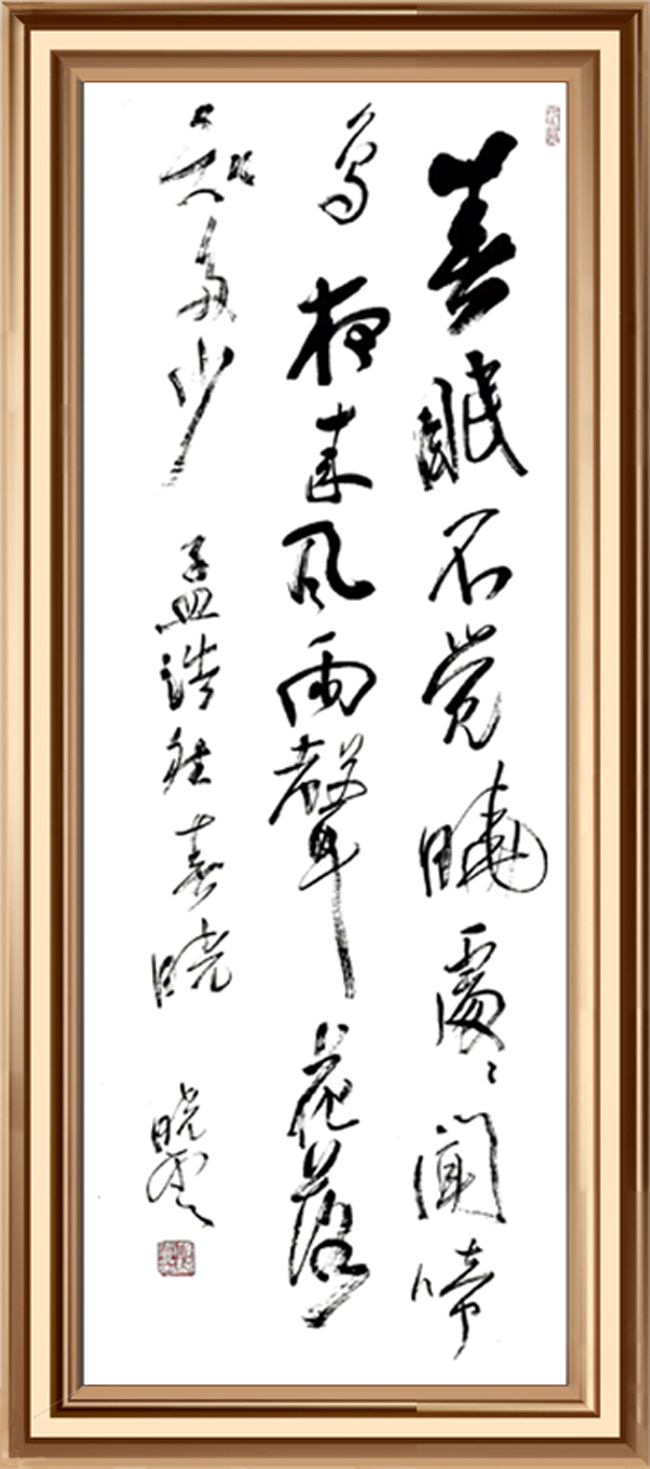 春眠不觉曉處々闻啼
鸟夜来风雨聲花落
知多少 孟浩然春晓 晓雲